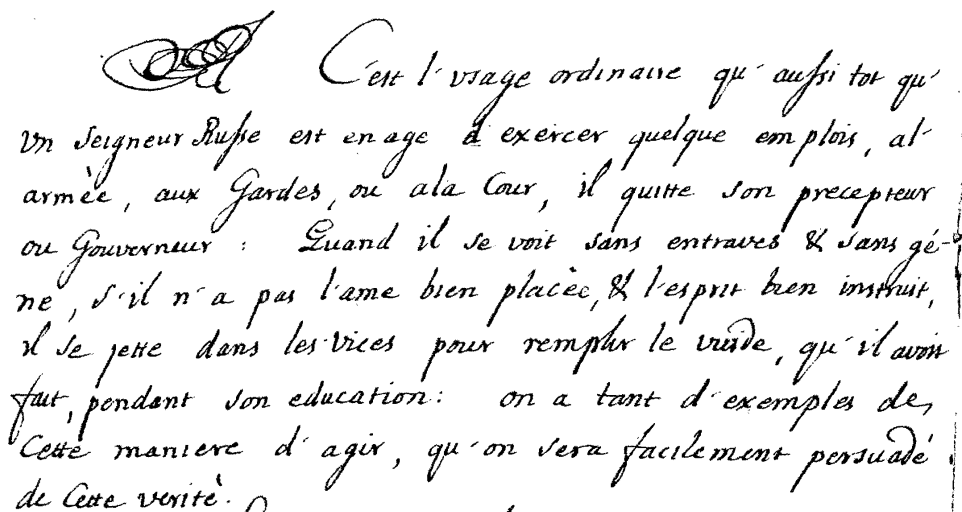 C'est l'vsage ordinaire qu'aussi tot qu'
vn Seigneur Russe est en age d'exercer quelque emplois, al'
armèe, aux Gardes, ou ala Cour, il quitte son precepteur
ou Gouverneur : Quand il se voit sans entraves & sans gé-
ne, s'il n'a pas l'ame bien placèe, & l'esprit bien instruit,
il se jette dans les Vices pour remplir le vuide, qu'il avoit
fait, pendant son education : on a tant d'exemples de,
Cette maniere d'agir, qu'on sera facilement persuadé
de Cette veritè.